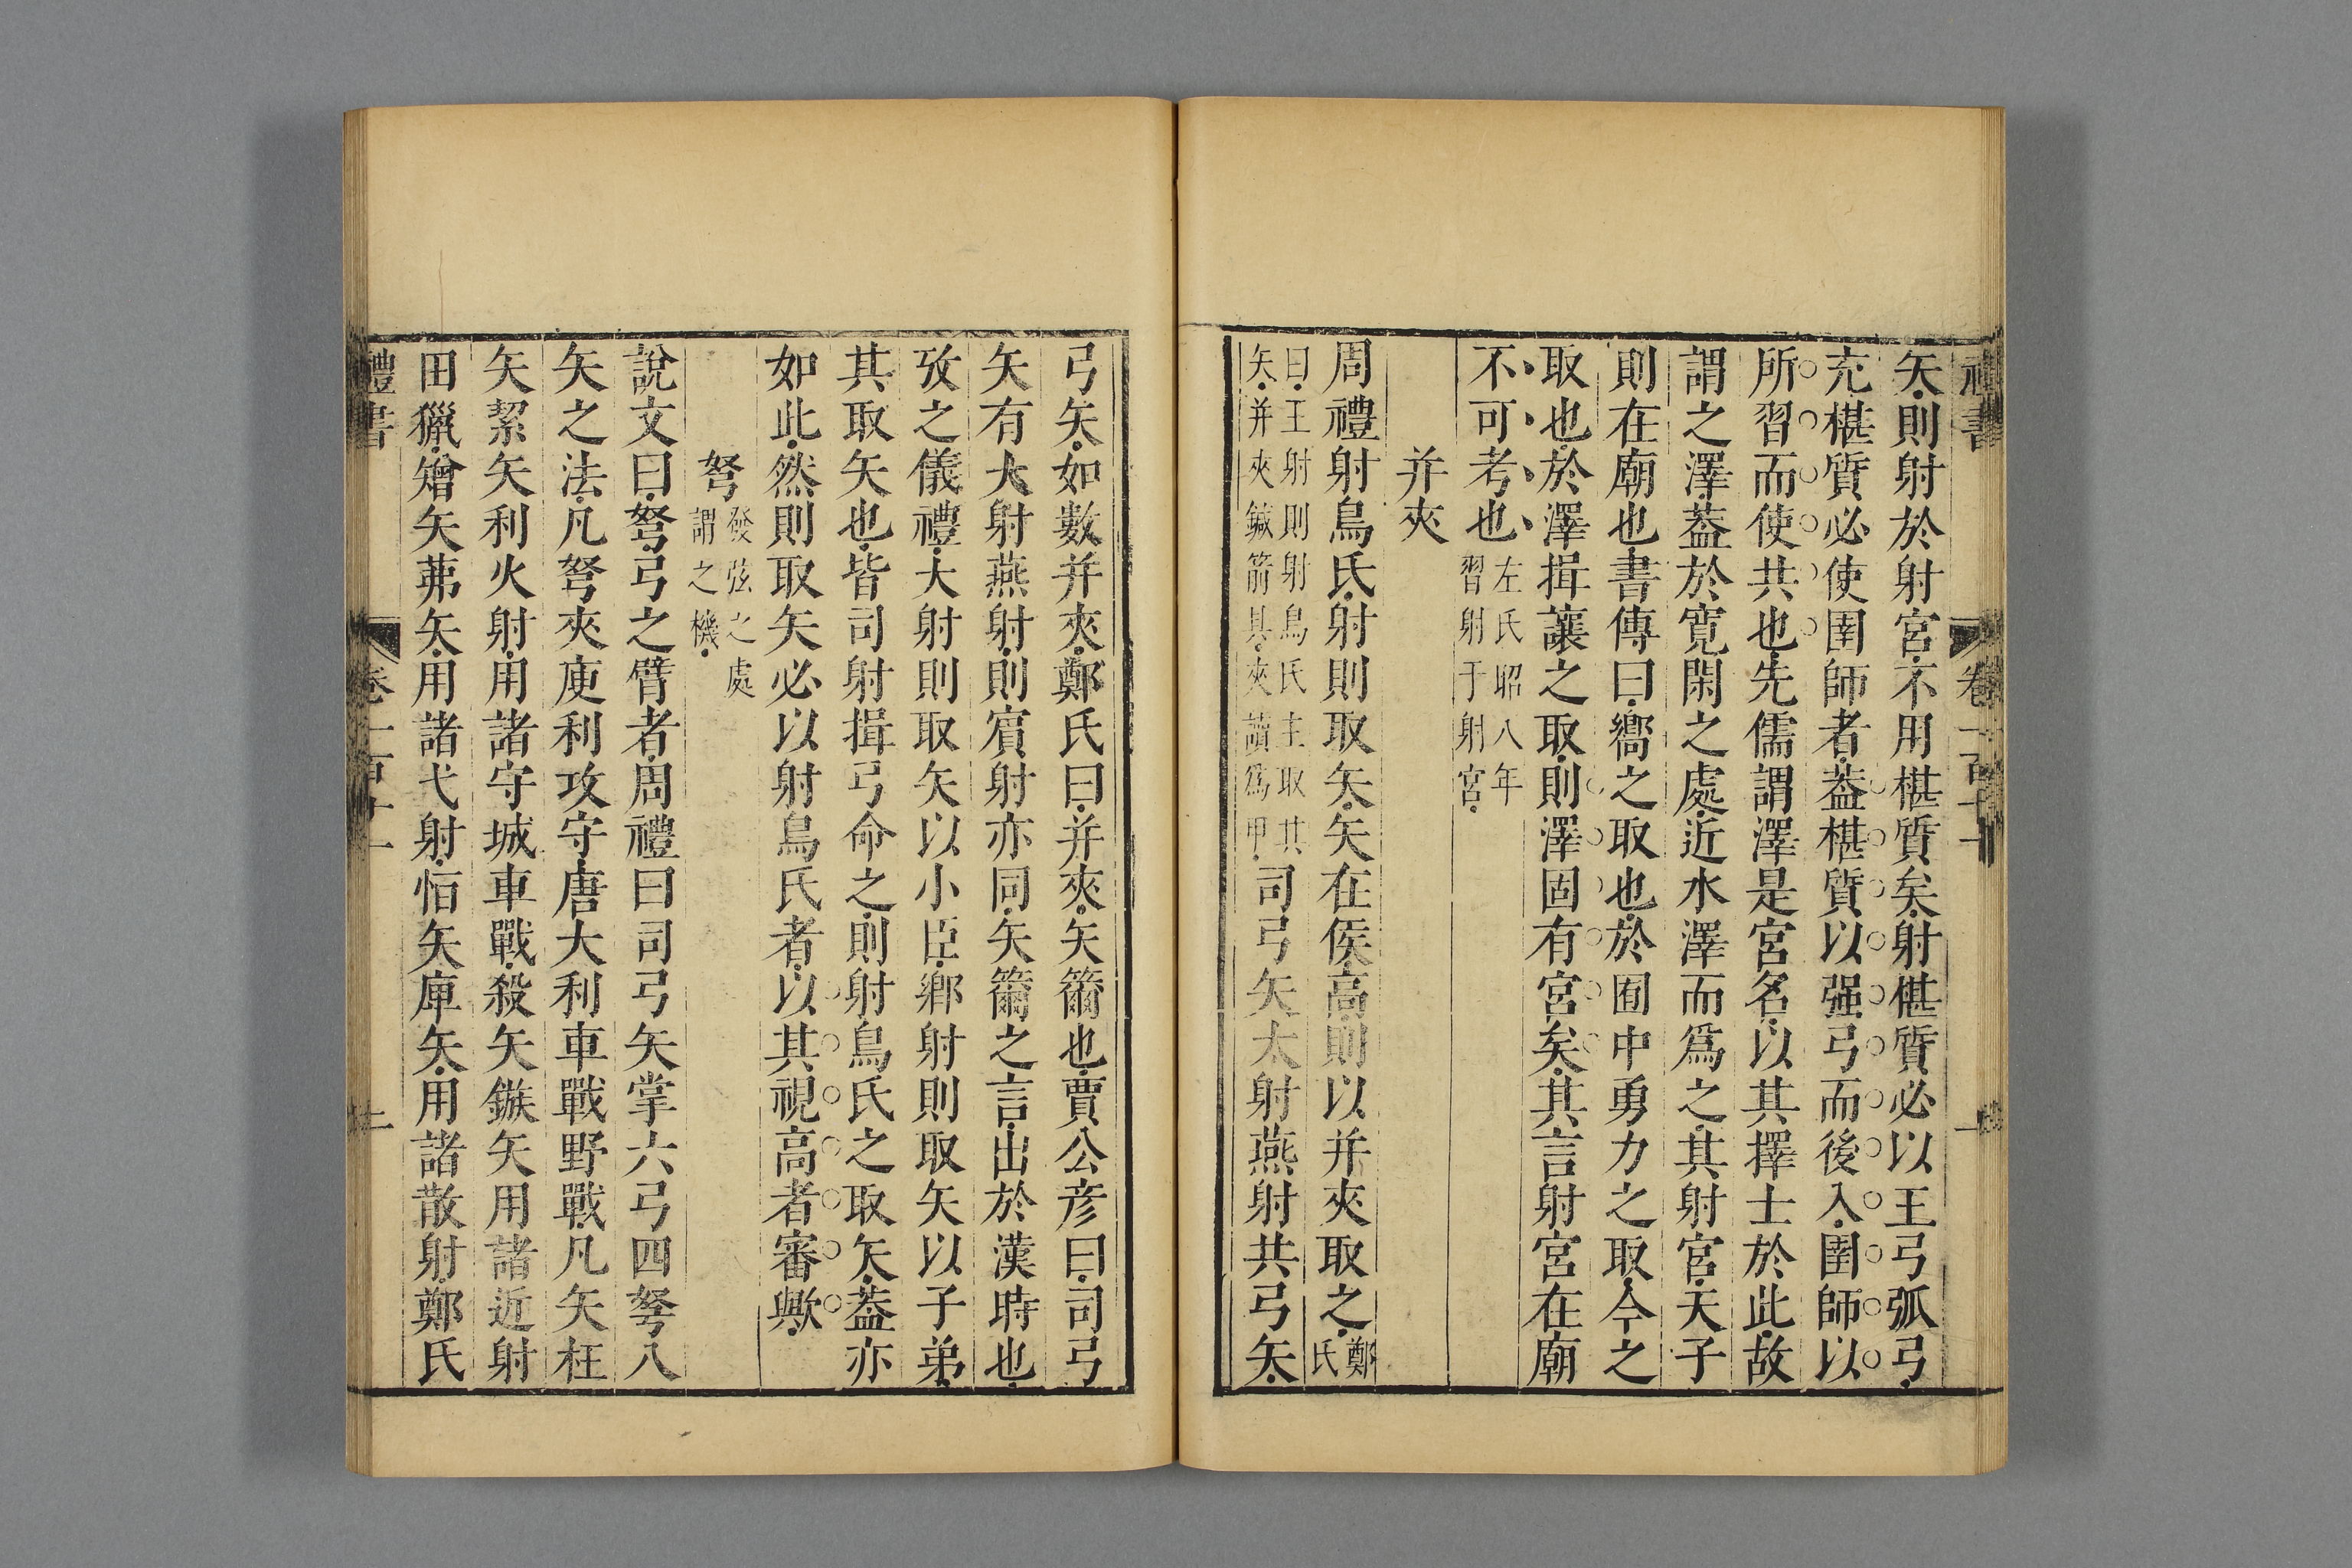 矢則射於射宮不用椹質矣射椹質必以王弓弧弓
充椹質必使圉師者蓋椹質以强弓而後入圉師以
所習而使共也先儒謂澤是宮名以其擇士於此故
謂之澤蓋於寬閑之處近水澤而爲之其射宮天子
則在廟也書傳曰嚮之取也於囿中勇力之取今之
取也於澤揖讓之取則澤固有宮矣其言射宮在廟
不可考也左氏昭八年
習射于射宮
并夾
周禮射鳥氏射則取矢矢在侯高則以并夾取之鄭
氏
曰王射則射鳥氏主取其
矢并夾鍼箭具夾讀爲甲司弓矢大射燕射共弓矢
弓矢如數并夾鄭氏曰并夾矢籋也賈公彦曰司弓
矢有大射燕射則賔射亦同矢籋之言出於漢時也
攷之儀禮大射則取矢以小臣鄉射則取矢以子弟
其取矢也皆司射揖弓命之則射鳥氏之取矢蓋亦
如此然則取矢必以射鳥氏者以其視高者審歟
弩發弦之處
謂之機
說文曰弩弓之臂者周禮曰司弓矢掌六弓四弩八
矢之法凡弩夾庾利攻守唐大利車戰野戰凡矢枉
矢絜矢利火射用諸守城車戰殺矢鏃矢用諸近射
田獵矰矢茀矢用諸弋射恒矢庳矢用諸散射鄭氏
禮書
卷一百十一